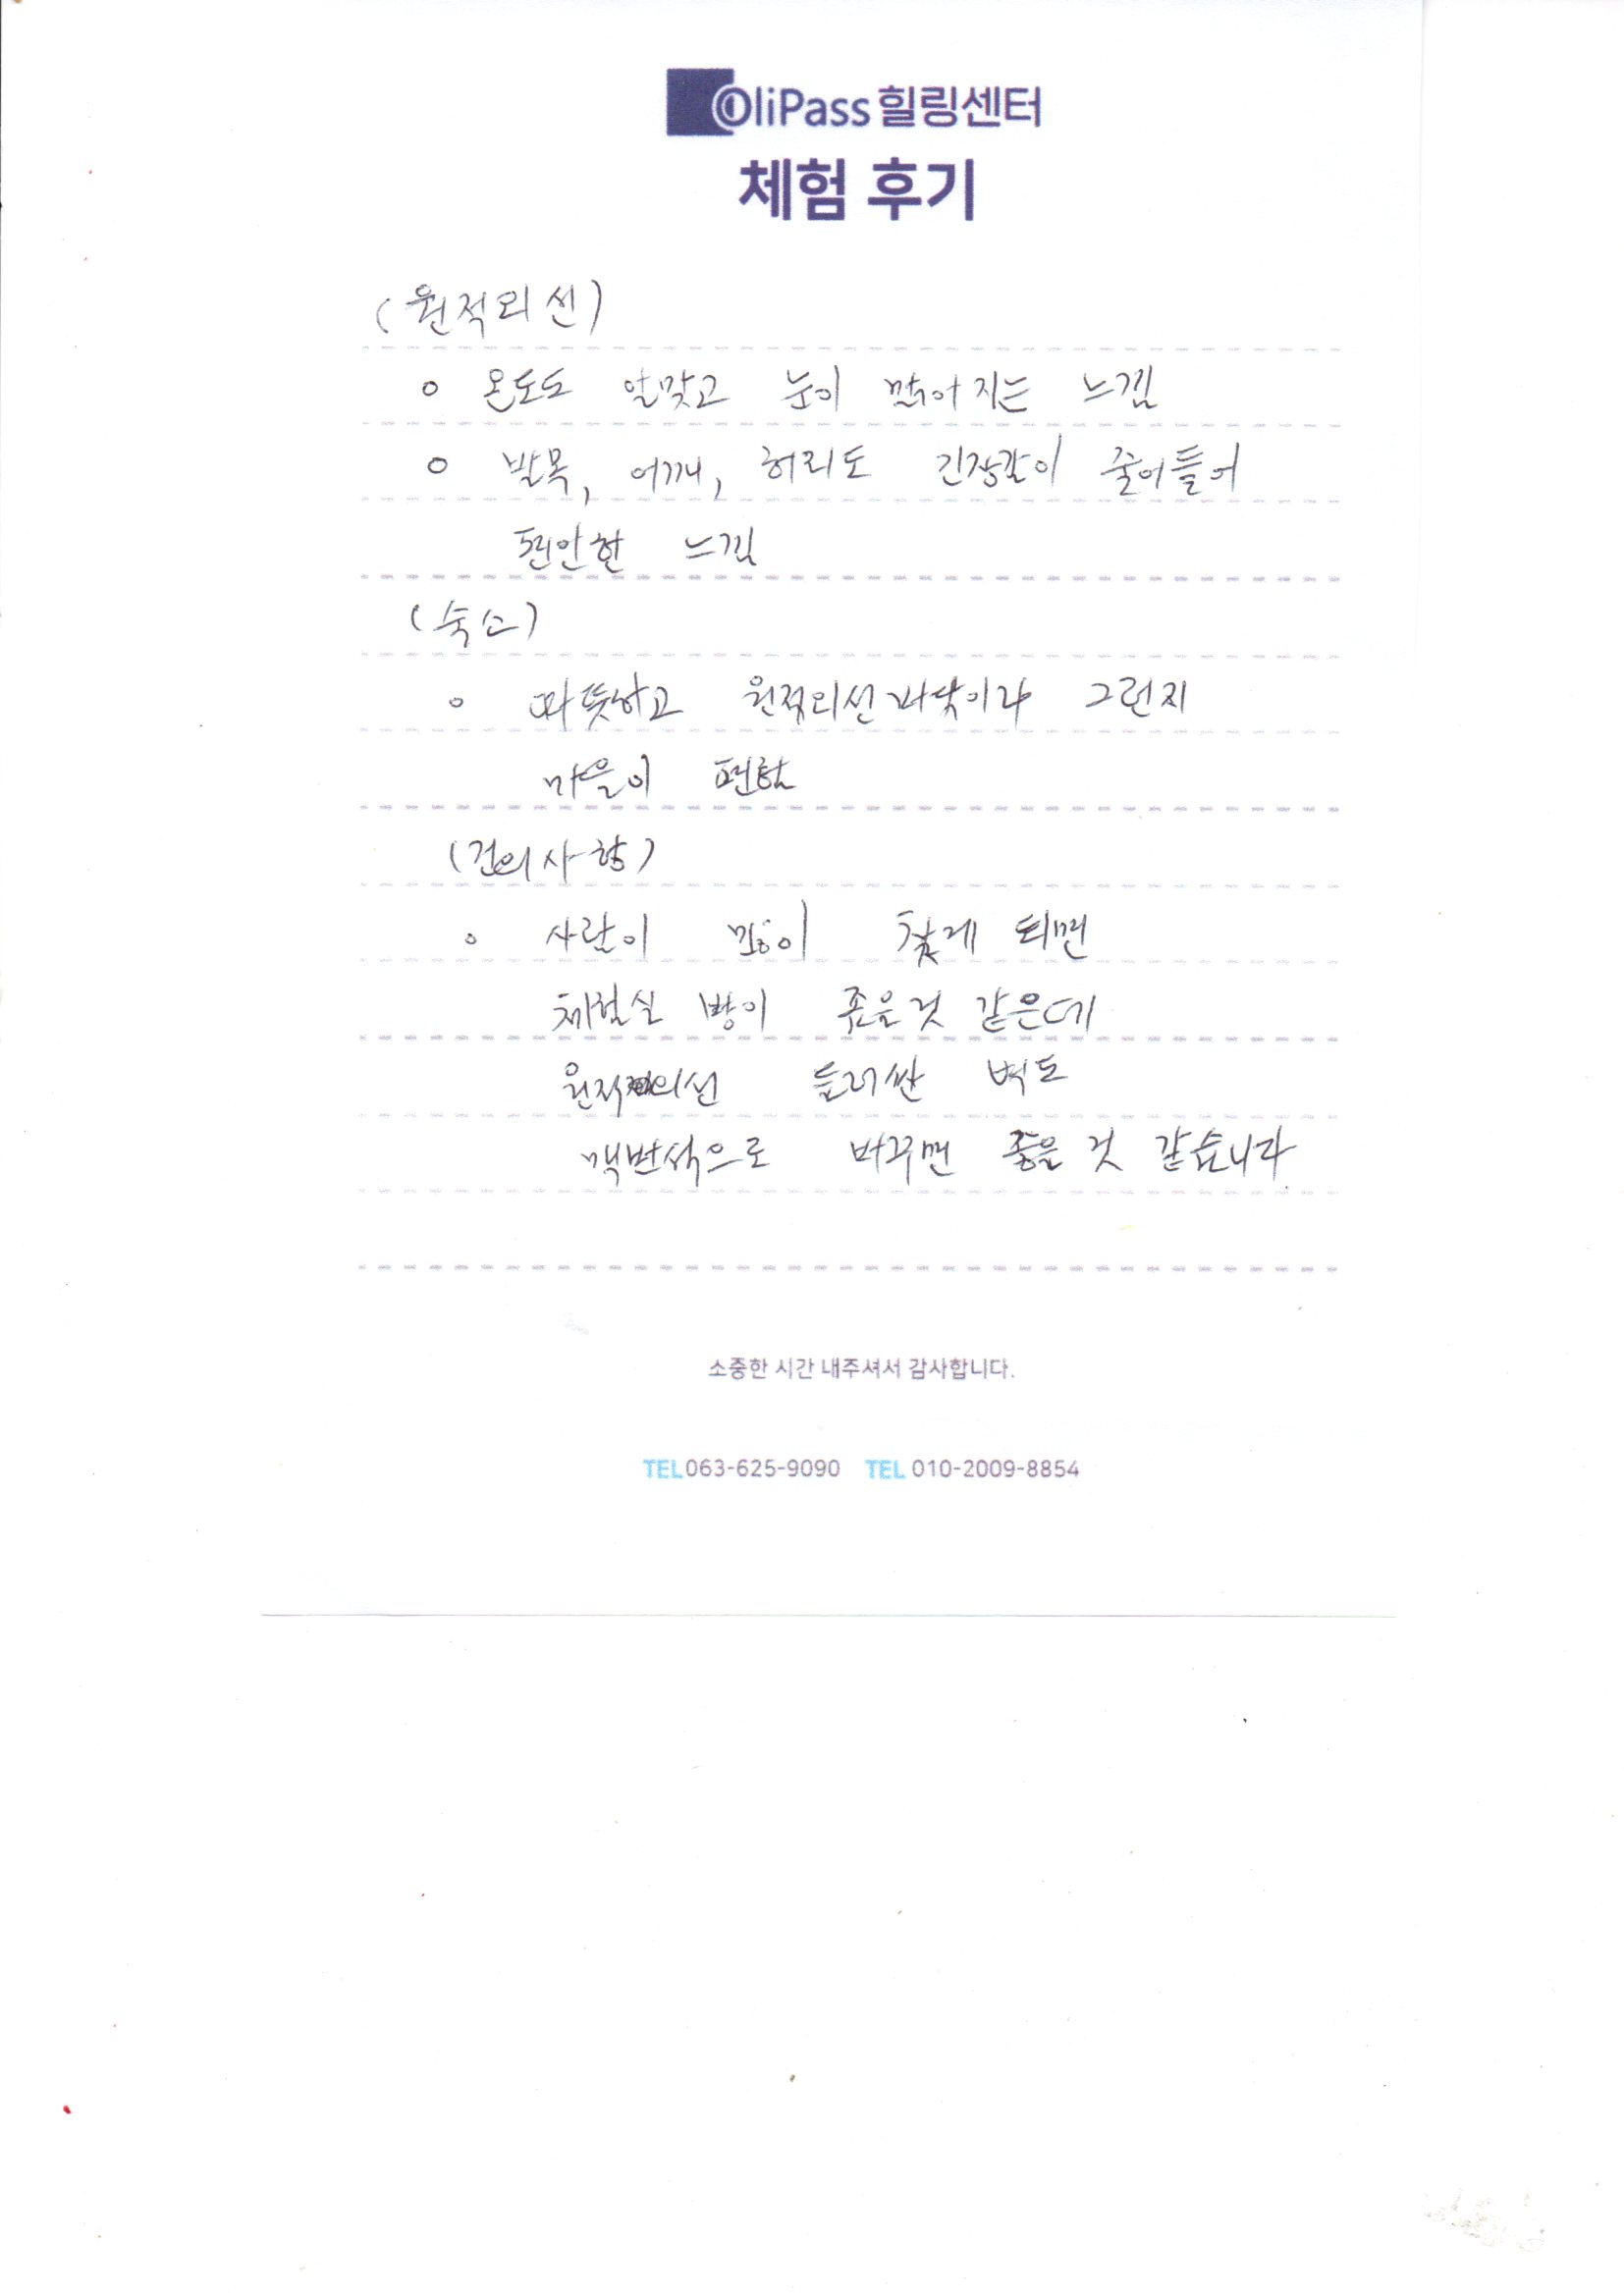 OliPass 힐링센터
체험 후기
(원적외선)
○ 온도도 알맞고 눈이 맑아 지는 느낌
○ 발목, 어깨, 허리도 긴장감이 줄어들어
편안한 느낌
(숙소)
○ 따뜻하고 원적외선 바닥이라 그런지
마음이 편함
(건의사항)
○ 사람이 많이 찾게 되면
체험실 방이 좁을것 같은데
원적외선 둘러싼 벽도
맥반석으로 바꾸면 좋을 것 같습니다
소중한 시간 내주셔서 감사합니다.
TEL 063-625-9090 TEL 010-2009-8854